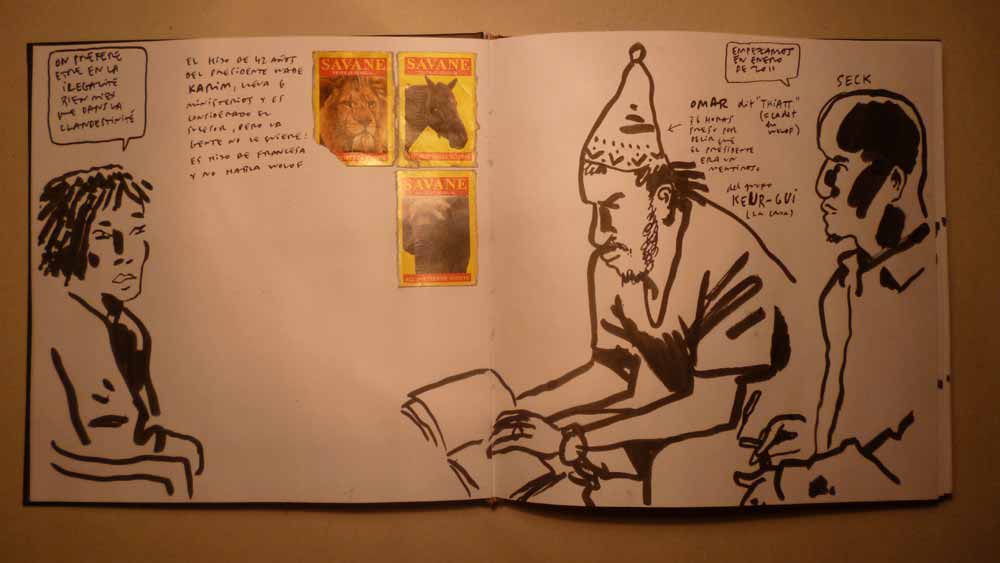 ON PREFERE
ETRE EN LA
ILEGALITE
BIEN MIEN
QUE DANS LA
CLANDESTINITÉ
EL HIJO DE 42 AÑOS
DEL PRESIDENTE WADE
KARIM, LLEVA 6
MINISTERIOS Y ES
CONSIDERADO EL
SUCESOR, PERO LA
GENTE NO LE QUIERE:
ES HIJO DE FRANCESA
Y NO HABLA WOLOF
SAVANE
SAVANE
SAVANE
EMPEZAMOS
EN ENERO
DE 2011
SECK
OMAR dit "THIATT"
76 HORAS
PRESO POR
DECIR QUE
EL PRESIDENTE
ERA UN
MENTIROSO.
del grupo
KEUR-GUI
(LA CASA)